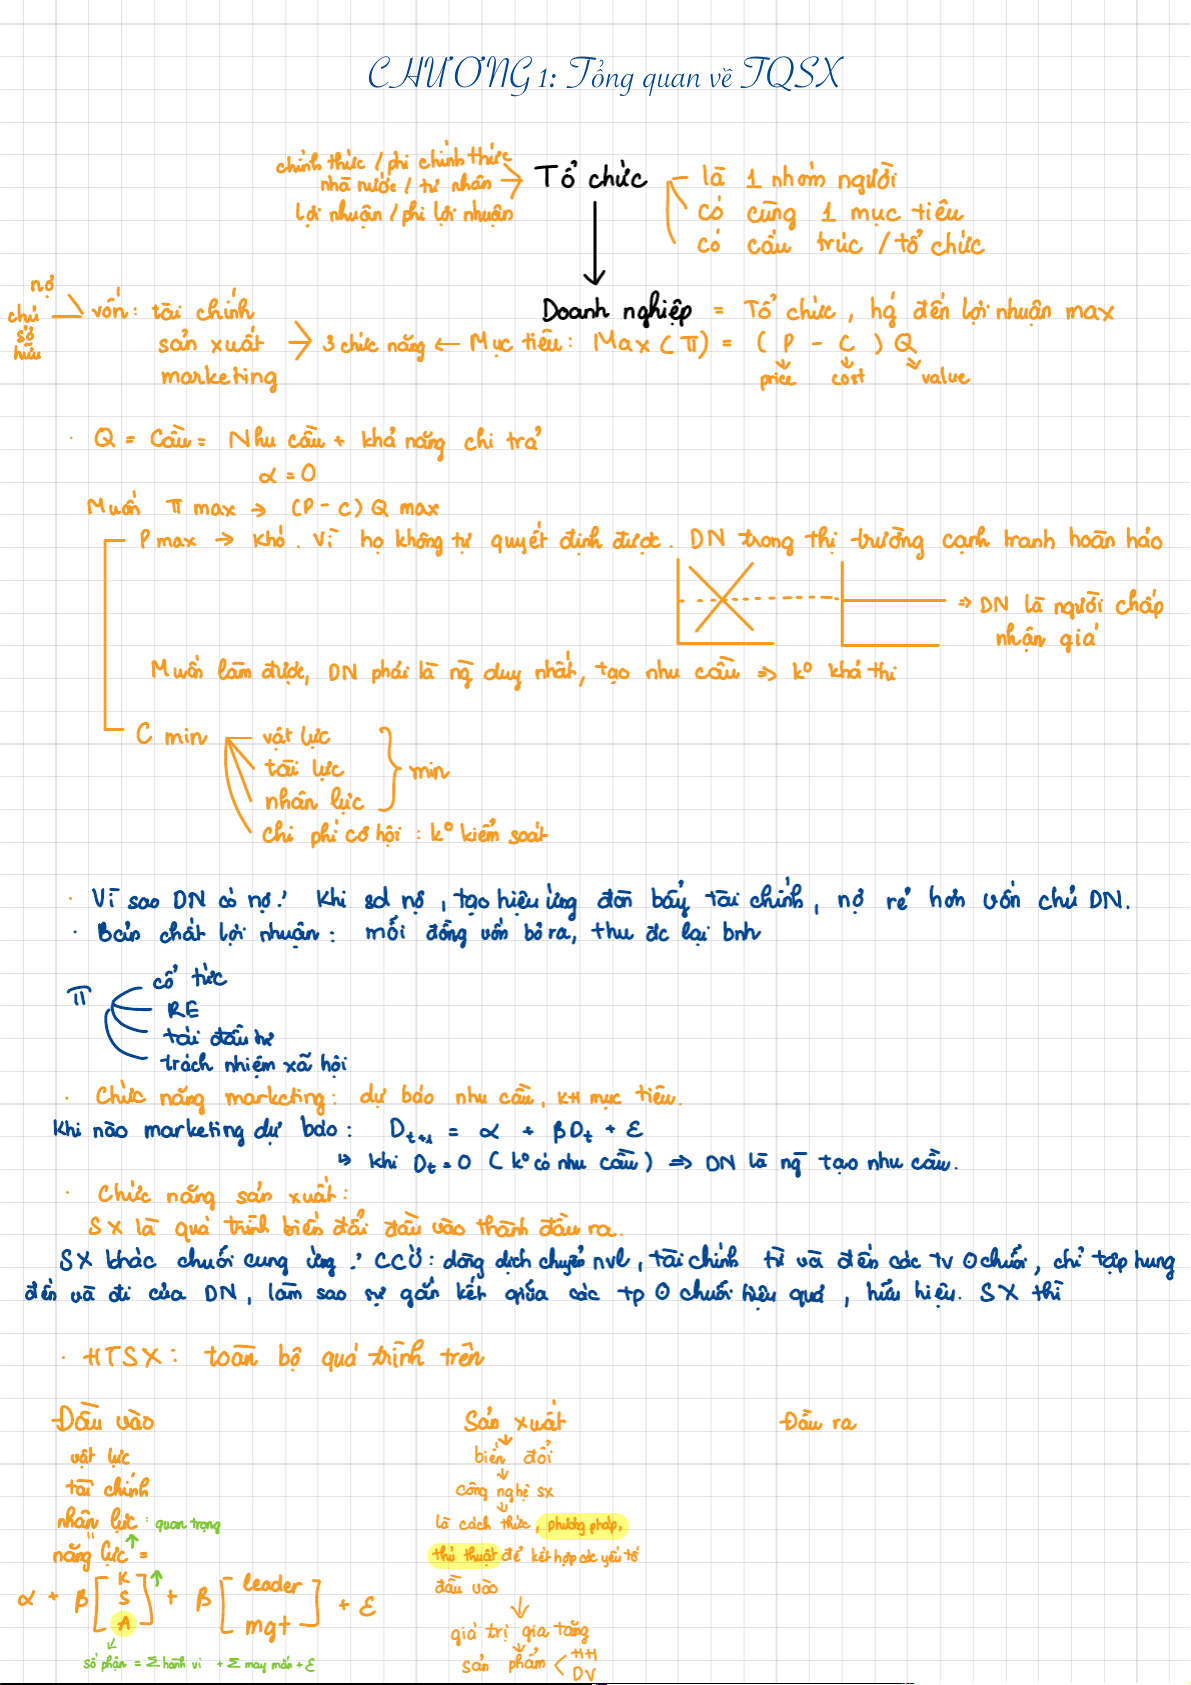 CHƯƠNG 1: Tổng quan về TQSX
chính thức / phi chính thức
nhà nước / tư nhân
lợi nhuận / phi lợi nhuận
Tổ chức
là 1 nhóm người
có cùng 1 mục tiêu
có cấu trúc / tổ chức
nợ
chủ sở hữu
vốn: tài chính
sản xuất
marketing
3 chức năng ← Mục tiêu: Max (π) = (P - C) Q
Doanh nghiệp = Tổ chức, hg đến lợi nhuận max
price cost value
· Q = Cầu = Nhu cầu + khả năng chi trả
α = 0
Muốn π max → (P - C) Q max
P max → khó. Vì họ không tự quyết định được. DN trong thị trường cạnh tranh hoàn hảo
⇒ DN là người chấp
nhận giá
Muốn làm được, DN phải là ng duy nhất, tạo nhu cầu ⇒ k° khả thi
C min
vật lực
tài lực
nhân lực
min
chi phí cơ hội: k° kiểm soát
· Vì sao DN có nợ ∵ Khi sd nợ, tạo hiệu ứng đòn bẩy tài chính, nợ rẻ hơn vốn chủ DN.
· Bản chất lợi nhuận: mỗi đồng vốn bỏ ra, thu đc lại bnh
π
cổ tức
RE
tái đầu tư
trách nhiệm xã hội
· Chức năng marketing: dự báo nhu cầu, KH mục tiêu.
Khi nào marketing dự báo: Dt+1 = α + βDt + ε
↳ khi Dt = 0 (k° có nhu cầu) ⇒ DN là ng tạo nhu cầu.
· Chức năng sản xuất:
SX là quá trình biến đổi đầu vào thành đầu ra.
SX khác chuỗi cung ứng ∵ CCƯ: dòng dịch chuyển nvl, tài chính từ và đến các tv ʘ chuỗi, chỉ tập trung
đến và đi của DN, làm sao sự gắn kết giữa các tp ʘ chuỗi hiệu quả, hữu hiệu. SX thì
· HTSX: toàn bộ quá trình trên
Đầu vào
vật lực
tài chính
nhân lực: quan trọng
năng lực =
α + β [K S A] + β [leader mgt] + ε
số phận = Σ hành vi + Σ may mắn + ε
Sản xuất
biến đổi
công nghệ sx
là cách thức, phương pháp,
thủ thuật để kết hợp các yếu tố
đầu vào
giá trị gia tăng
sản phẩm < HH
DV
Đầu ra